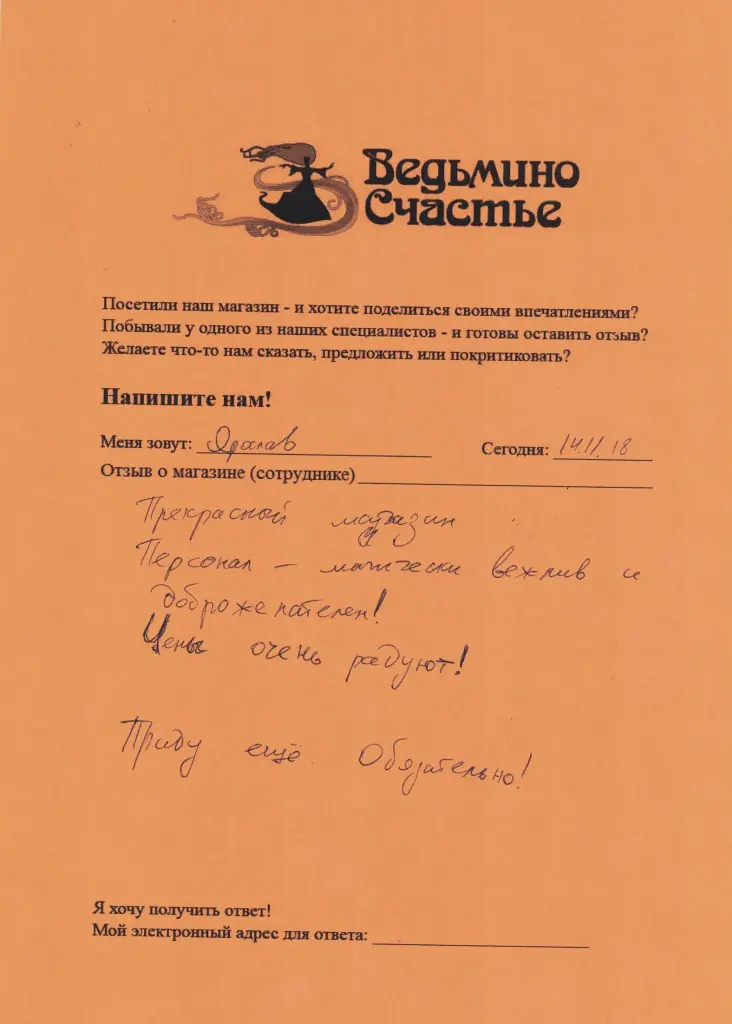 Ведьмино
Счастье
Посетили наш магазин - и хотите поделиться своими впечатлениями?
Побывали у одного из наших специалистов - и готовы оставить отзыв?
Желаете что-то нам сказать, предложить или покритиковать?
Напишите нам!
Меня зовут: Яросlав Сегодня: 14.11.18
Отзыв о магазине (сотруднике)
Прекрасный магазин
Персонал – магически вежлив и
доброжелателен!
Цены очень радуют!
Приду ещё. Обязательно!
Я хочу получить ответ!
Мой электронный адрес для ответа: